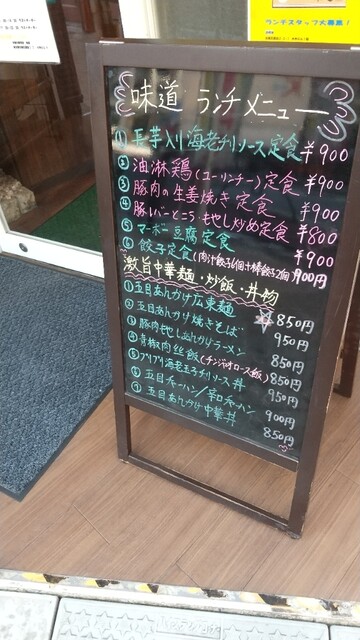 ランチスタッフ大募集!
味道 ランチメニュー
① 長芋入り海老チリソース定食 ¥900
② 油淋鶏(ユーリンチー)定食 ¥900
③ 豚肉の生姜焼き定食 ¥900
④ 豚レバーとニラもやし炒め定食 ¥800
⑤ マーボー豆腐定食 ¥900
⑥ 餃子定食(肉汁餃子6個+棒餃子2個) 900円
激旨中華麺・炒飯・丼物
① 五目あんかけ広東麺 850円
② 五目あんかけ焼きそば 950円
③ 豚肉もやしあんかけラーメン 850円
④ 青椒肉絲飯(チンジャオロース飯) 850円
⑤ プリプリ海老玉子チリソース丼 950円
⑥ 五目チャーハン/ 900円
⑦ 五目あんかけ中華丼 850円